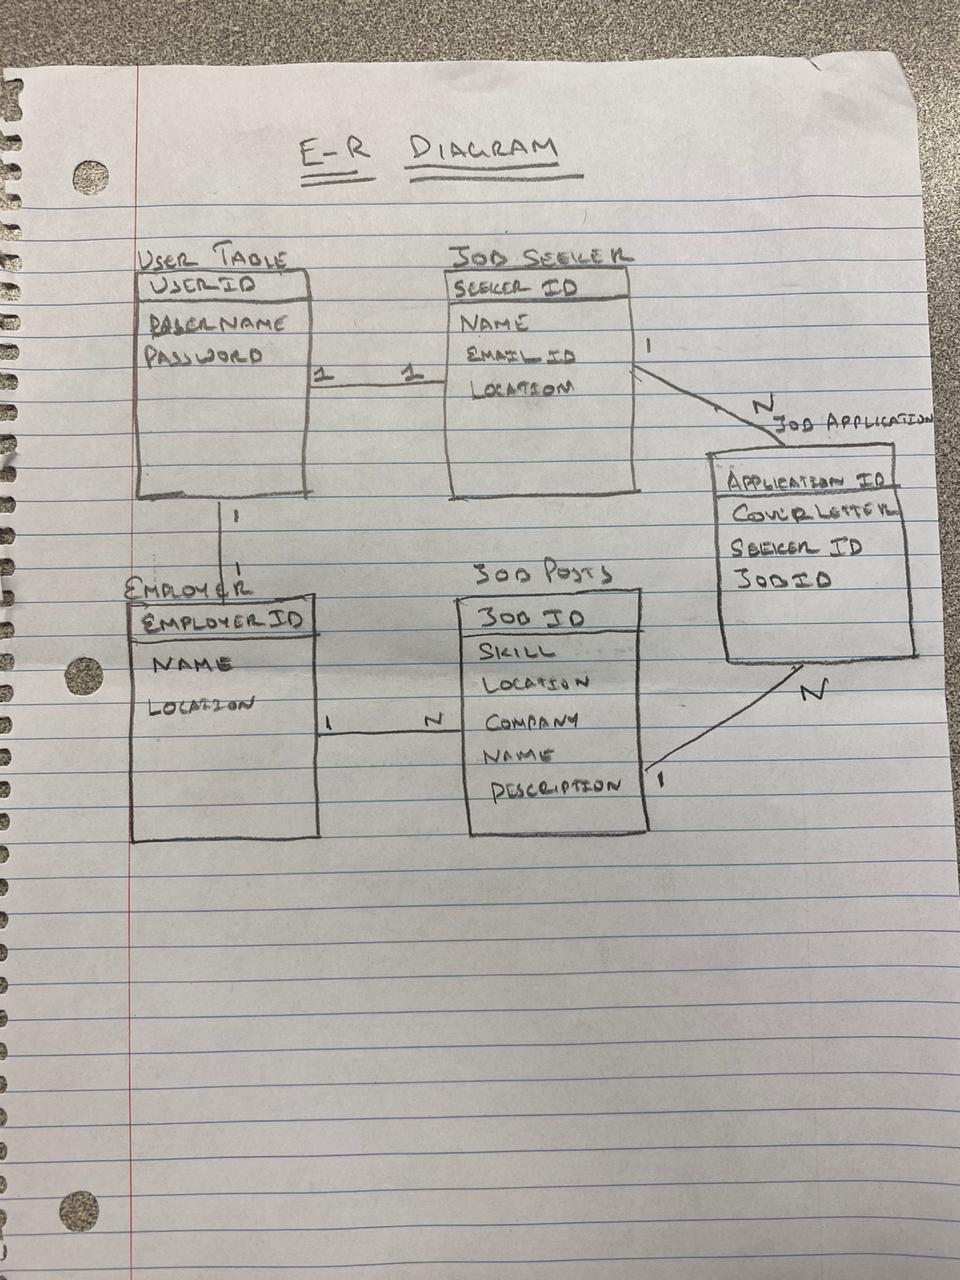 E-R DIAGRAM
USER TABLE
USER ID
PASSWORD
1 1
JOB SEEKER
SEEKER ID
NAME
EMAIL ID
LOCATION
1
N
JOB APPLICATION
APPLICATION ID
COVER LETTER
SEEKER ID
JOB ID
N
1
1
EMPLOYER
EMPLOYER ID
NAME
LOCATION
1 N
JOB POSTS
JOB ID
SKILL
LOCATION
COMPANY
NAME
DESCRIPTION
1